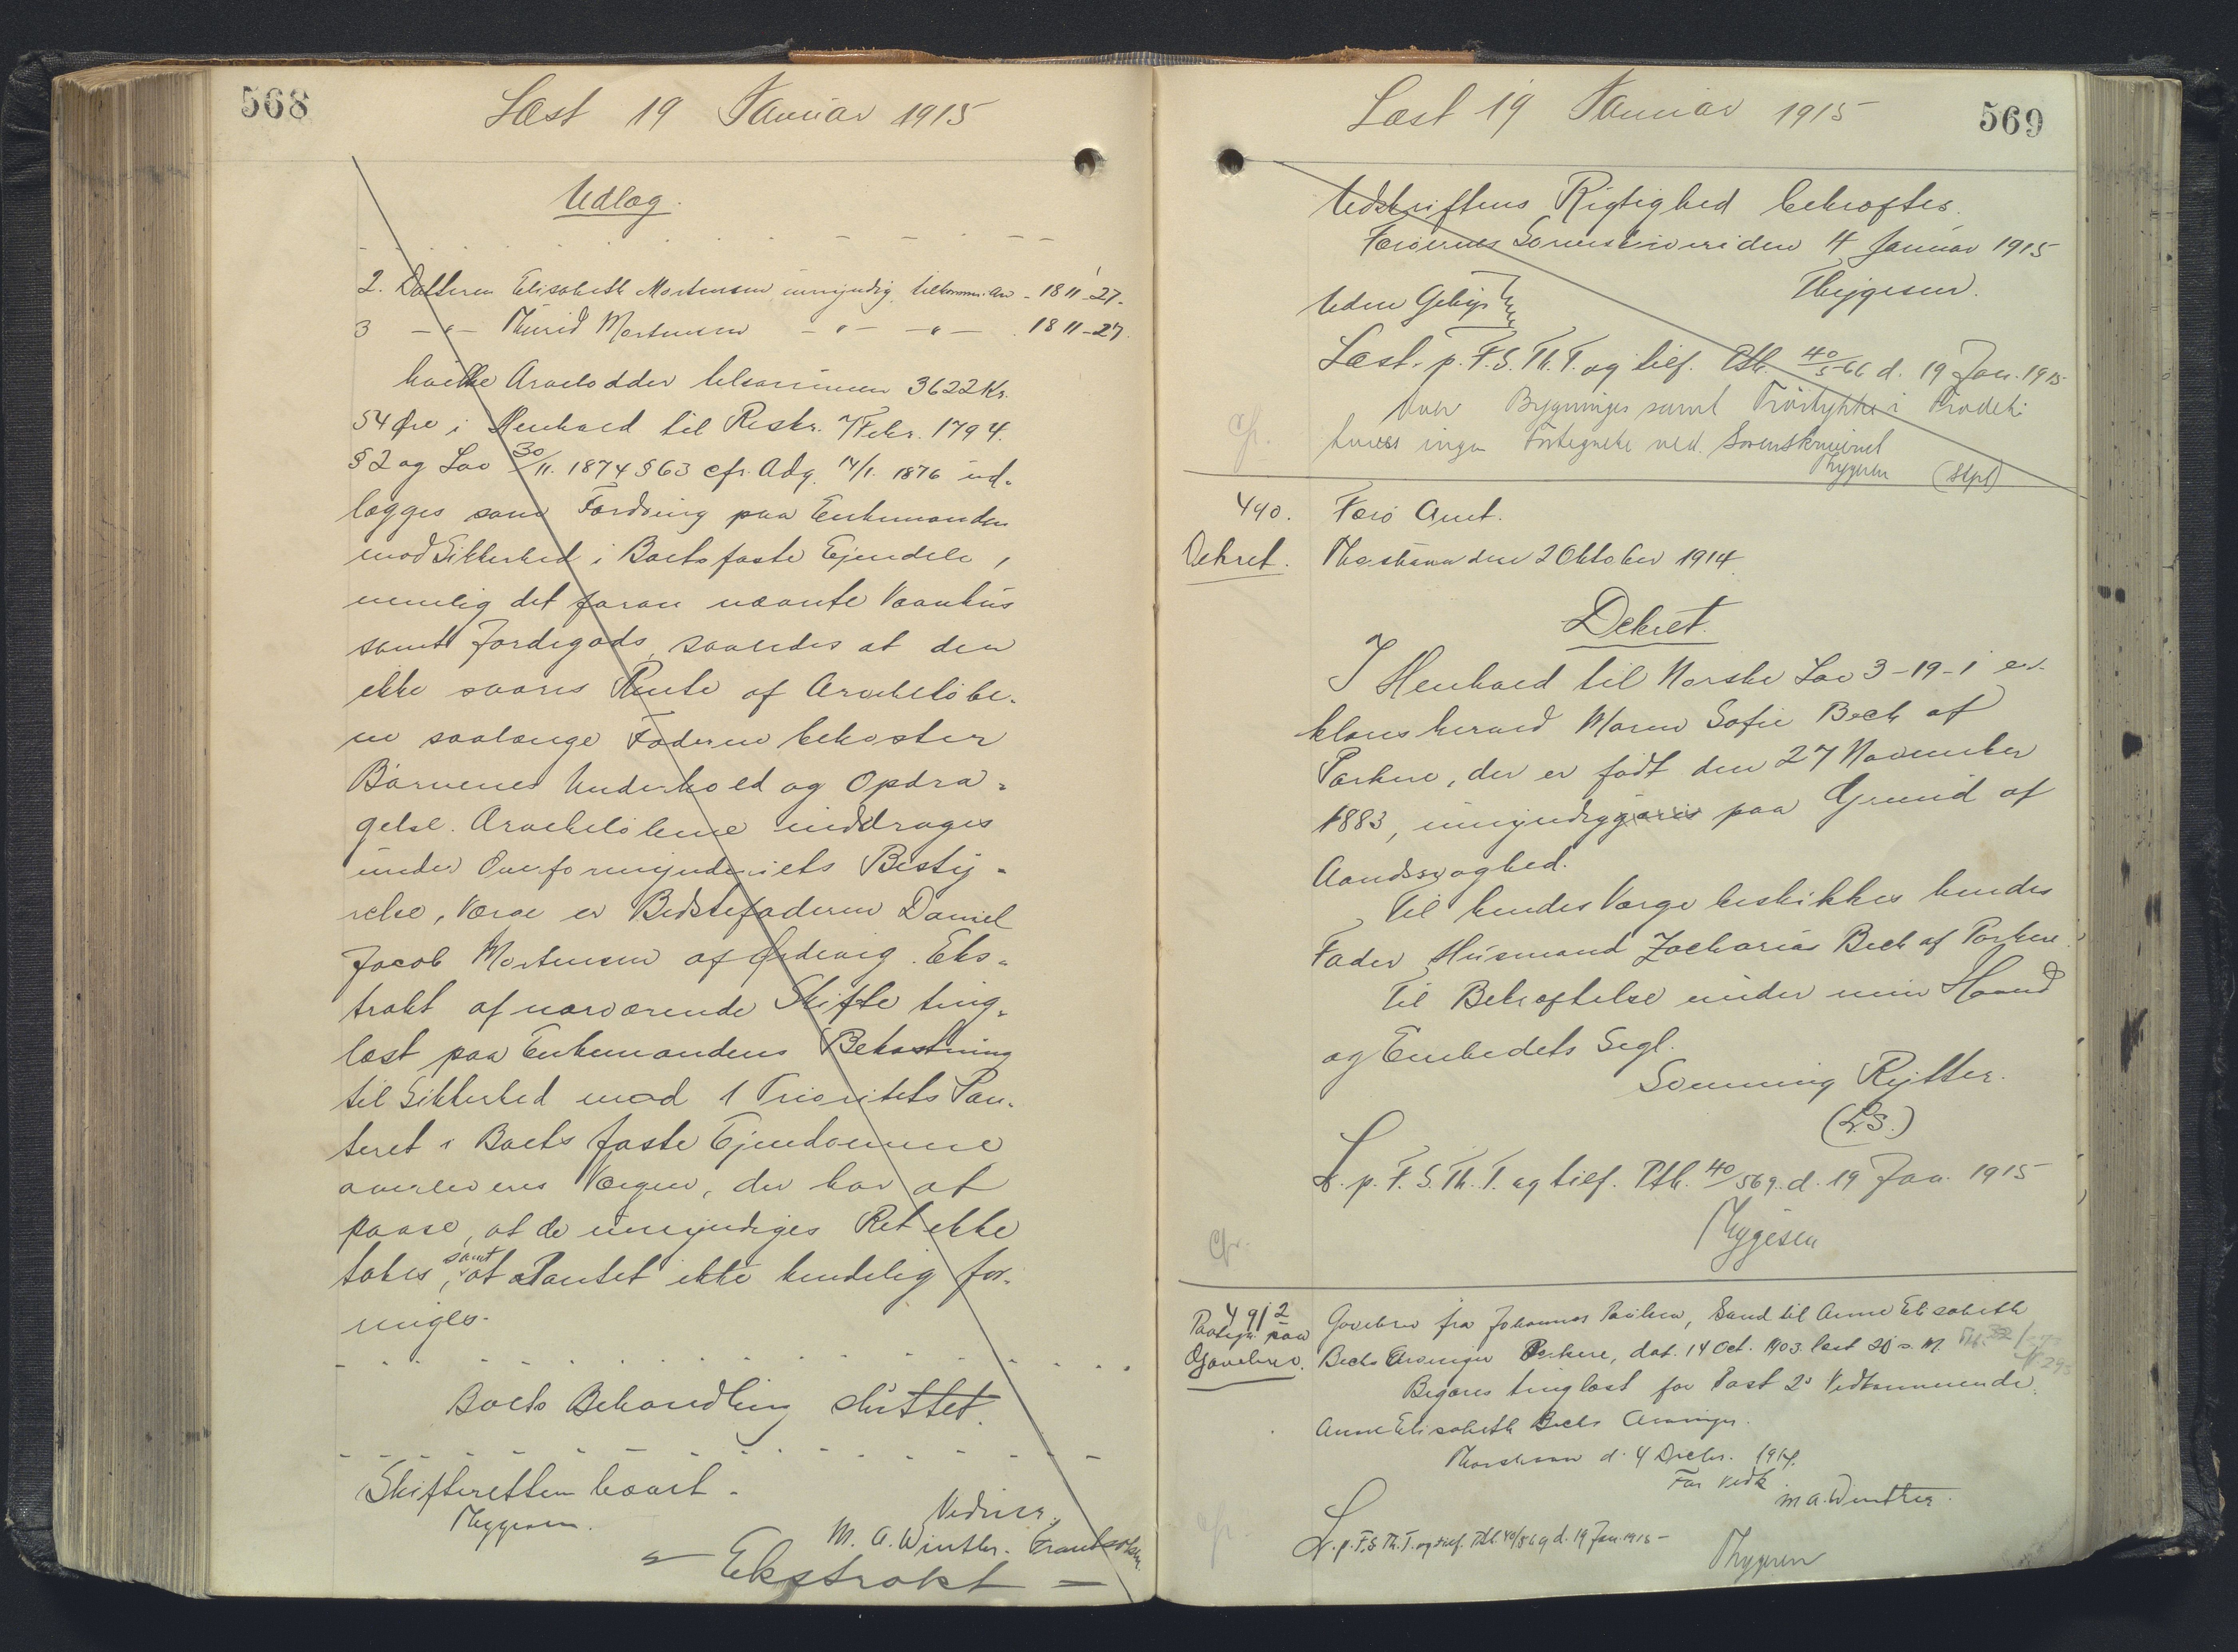 568
Læst 19 Januar 1915
Udlæg.
2. Datteren Elisabeth Mortensen umyndig tilkommer Arv - 1811-27-
3 -"- Thurid Mortensen -"- -"- 1811-27.
hvilke Arvelodder tilsammen 3622 Kr.
54 Øre i Henhold til Reskr. 7 Febr. 1794.
§ 2 og Lov 30/11. 1874 § 63 cfr. Adg. 14/1. 1876 ud-
lægges som Fordring paa Enkemanden
mod Sikkerhed i Boets faste Ejendele,
nemlig det foran nævnte Vaanhus
samt Jordegods, saaledes at der
ikke svares Rente af Arvebeløbe-
ne saalænge Faderen bekoster
Børnenes Underhold og Opdra-
gelse. Arvebeløbene inddrages
under Overformynderiets Besty-
relse, Værge er Bedstefaderen Daniel
Jacob Mortensen af Ørdevig. Eks-
trakt af nærværende Skifte ting-
læst paa Enkemandens Bekostning
til Sikkerhed med 1 Prioritets Pan-
teret i Boets faste Ejendomme
overleveres Værgen, der har at
paase, at de umyndiges Ret ikke
tabes, samt at Pantet ikke kendelig for-
ringes.
Boets Behandling sluttet.
Skifteretten hævet.
Thygesen.
Vidner.
M. A. Winther. Frantsolsen.
- Ekstrakt -
Læst 19 Januar 1915
569
Udskriftens Rigtighed bekræftes.
Færøernes Sorenskriveri den 4 Januar 1915
Thygesen.
Uden Gebyr
Læst. p. F. S. Th. T. og tilf. Ptb. 40/566 d. 19 Jan. 1915
Over Bygninger samt
haves ingen ved Sorenskriveriet
Thygesen (Stpl)
cfr.
490. Færø Amt.
Dekret. Thorshavn den 2 Oktober 1914
Dekret.
I Henhold til Norske Lov 3-19-1 er-
klæres herved Maren Sofie Bech af
Porkere, der er født den 27 November
1883, umyndiggøres paa Grund af
Aandssvaghed.
Til hendes Værge beskikkes hendes
Fader Husmand Zacharias Bech af Porkere.
Til Bekræftelse under min Haand
og Embedets Segl.
Svenning Rytter.
(L.S.)
L. p. F. S. Th. T. og tilf. Ptb. 40/569. d. 19 Jan. 1915
Thygesen
cfr.
491/2 Gavebrev fra Johannes Poulsen, Sand til Anne Elisabeth
Paategn. paa
Gavebrev. Bechs Arvinger Porkere, dat. 14 Oct. 1903. læst 20 s. M.
Begæres tinglæst for Post 2s Vedkommende.
Anne Elisabeth Bechs Arvinger.
Thorshavn d. 4 Decbr. 1914.
For Vedk.
M A. Winther.
L. p. F. S Th. T. og tilf. Ptb. 40/569 d. 19 Jan 1915 -
Thygesen